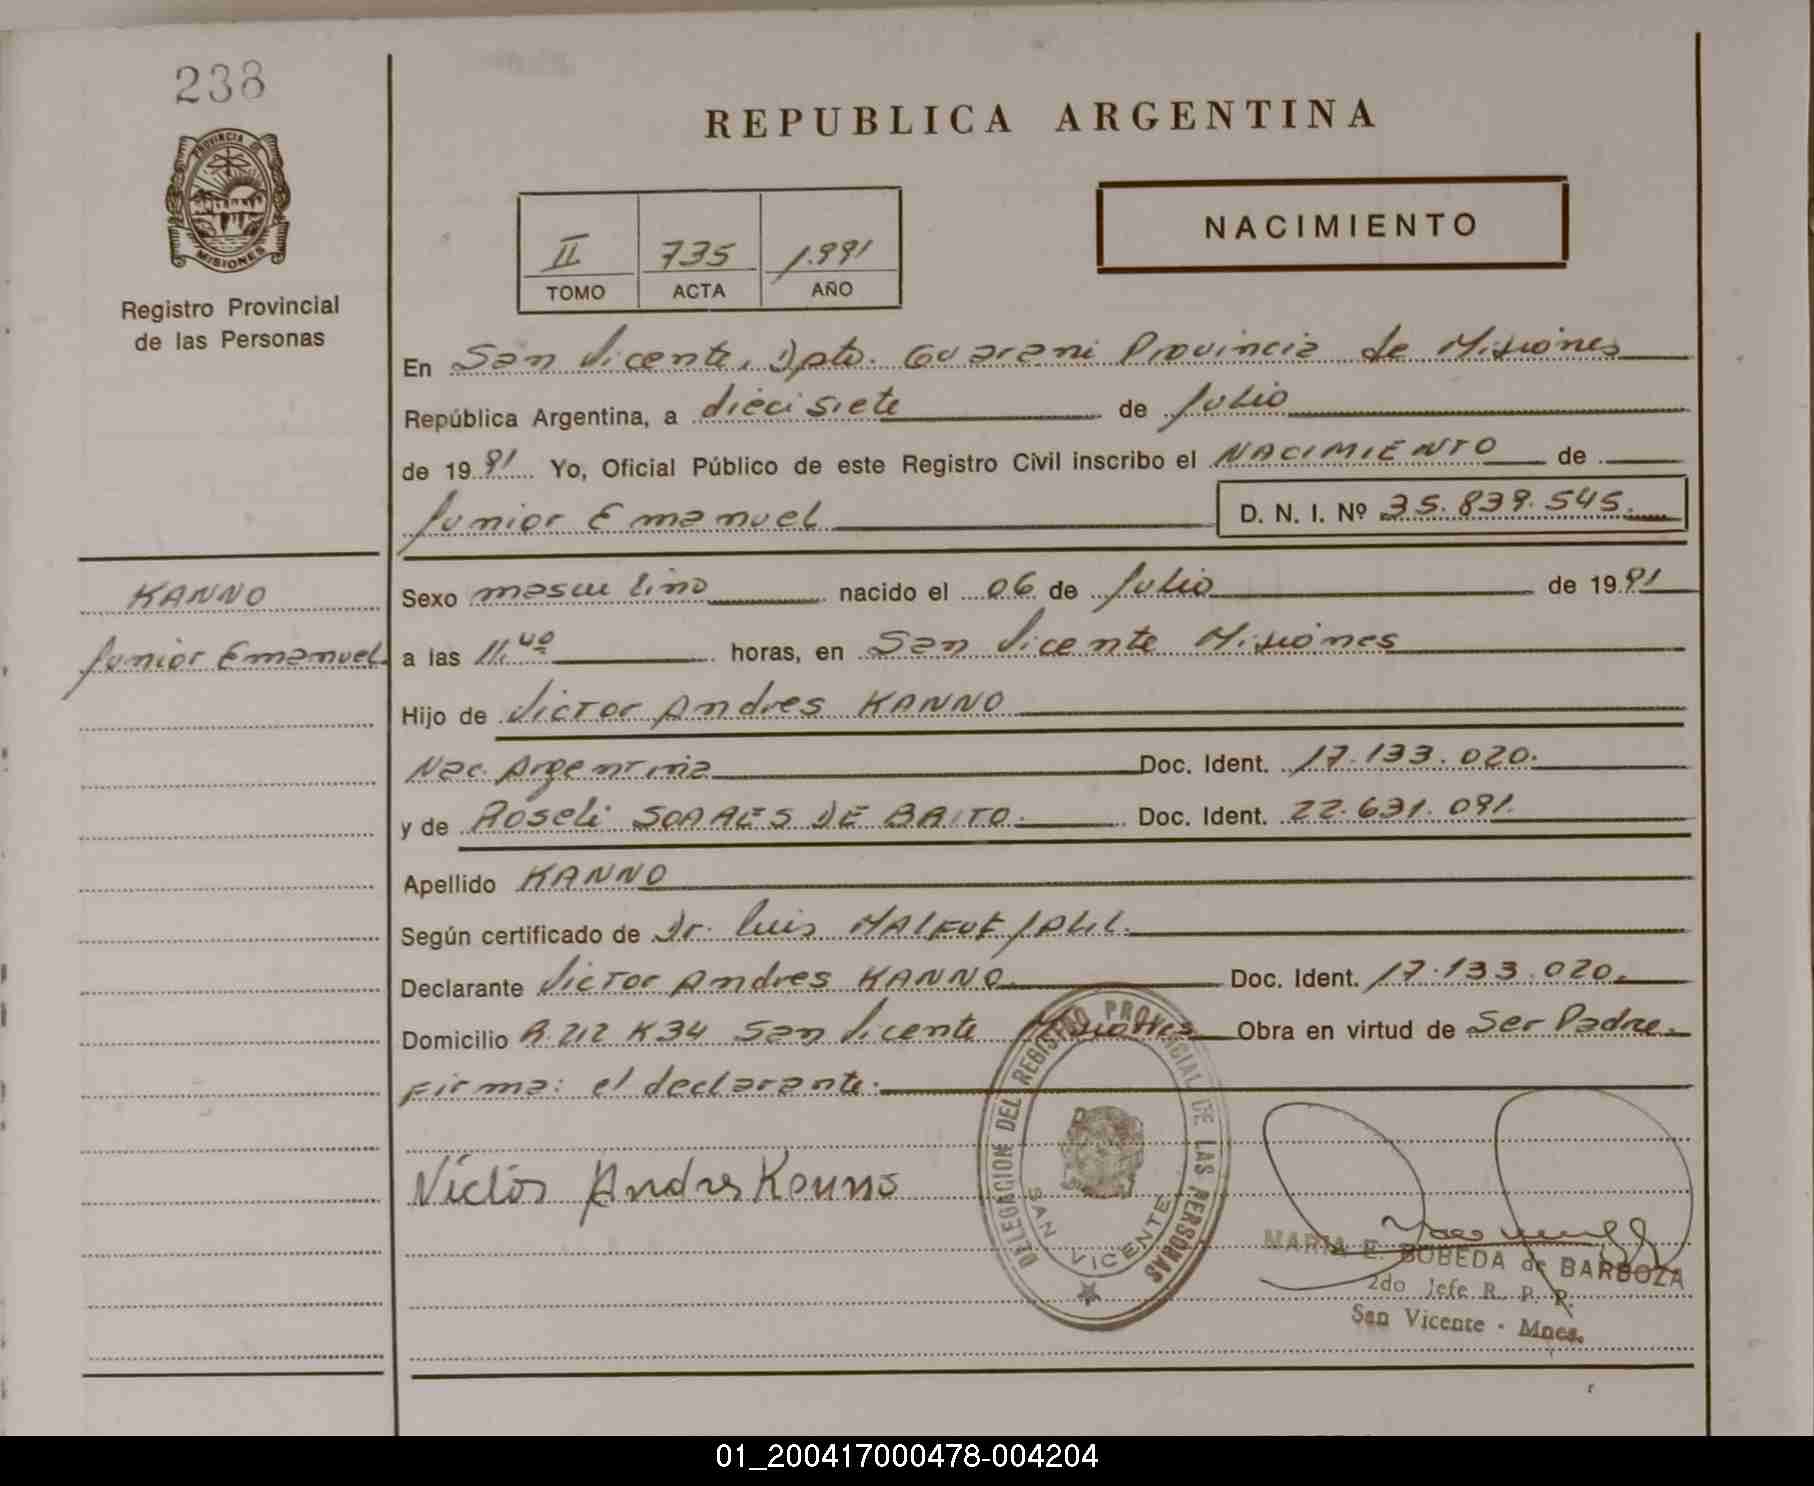 238
PROVINCIA DE
MISIONES
Registro Provincial
de las Personas
REPUBLICA ARGENTINA
II 735 1.991
TOMO ACTA AÑO
NACIMIENTO
En San Vicente, Dpto. Guarani Provincia de Misiones
República Argentina, a dieci siete de Julio
de 1991 Yo, Oficial Público de este Registro Civil inscribo el NACIMIENTO de
Junior Emanuel D. N. I. Nº 35.839.545.
KANNO
Junior Emanuel
Sexo masculino nacido el 06 de Julio de 1991
a las 11.40 horas, en San Vicente Misiones
Hijo de Victor Andres KANNO
Nac. Argentina Doc. Ident. 17.133.020.
y de Roseli SOARES DE BRITO. Doc. Ident. 22.631.091.
Apellido KANNO
Según certificado de Dr. Luis
Declarante Victor Andres KANNO Doc. Ident. 17.133.020.
Domicilio R. 212 K34 San Vicente Misiones Obra en virtud de Ser Padre.
Firma: el declarante.
Victor Andres Kanno
DELEGACION DEL REGISTRO PROVINCIAL DE LAS PERSONAS
SAN VICENTE
MARIA E. BOBEDA de BARBOZA
2do Jefe R. P. P.
San Vicente - Mnes.
01_200417000478-004204